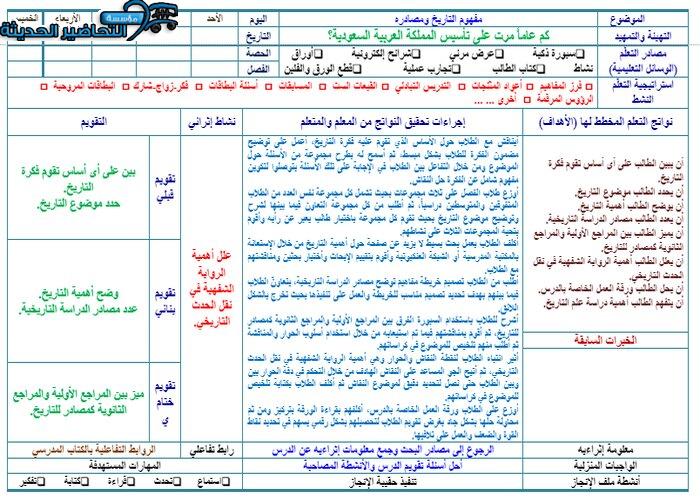 مؤسسة
التحاضير الحديثة
الموضوع
مفهوم التاريخ ومصادره
اليوم
الأحد
الأربعاء
الخميس
التهيئة والتمهيد
كم عاماً مرت على تأسيس المملكة العربية السعودية؟
التاريخ
مصادر التعلم
(الوسائل التعليمية)
سبورة ذكية
عرض مرئي
شرائح إلكترونية
أوراق
نشاط
كتاب الطالب
تجارب عملية
قطع الورق والفلين
الحصة
الفصل
استراتيجية التعلم
النشط
فرز المفاهيم
أعواد المثلجات
التدريس التبادلي
القبعات الست
المسابقات
أسئلة البطاقات
فكر-زواج-شارك
البطاقات المروحية
الرؤوس المرقمة
أخرى ... ...
نواتج التعلم المخطط لها (الأهداف)
إجراءات تحقيق النواتج من المعلم والمتعلم
نشاط إثرائي
التقويم
أن يبين الطالب على أي أساس تقوم فكرة
التاريخ.
أن يحدد الطالب موضوع التاريخ.
أن يوضح الطالب أهمية التاريخ.
أن يعدد الطالب مصادر الدراسة التاريخية.
أن يميز الطالب بين المراجع الأولية والمراجع
الثانوية كمصادر للتاريخ.
أن يعلل الطالب أهمية الرواية الشفهية في نقل
الحدث التاريخي.
أن يحل الطالب ورقة العمل الخاصة بالدرس.
أن يتفهم الطالب أهمية دراسة علم التاريخ.
الخبرات السابقة
أناقش مع الطلاب حول الأساس الذي تقوم عليه فكرة التاريخ، أعمل على توضيح
مضمون الفكرة للطلاب بشكل مبسط، ثم أسمح له بطرح مجموعة من الأسئلة حول
الموضوع ومن خلال التفاعل بين الطلاب في الإجابة على تلك الأسئلة يتوصلوا لتكوين
مفهوم شامل عن الفكرة حل النقاش.
أوزع طلاب الفصل على ثلاث مجموعات بحيث تشمل كل مجموعة نفس العدد من الطلاب
المتفوقين والمتوسطين دراسياً، ثم أطلب من كل مجموعة التعاون فيما بينها لشرح
وتوضيح موضوع التاريخ بحيث تقوم كل مجموعة باختيار طالب يعبر عن رأيه وأقوم
بتحية المجموعات الثلاث على نشاطهم.
أكلف الطلاب بعمل بحث بسيط لا يزيد عن صفحة حول أهمية التاريخ من خلال الإستعانة
بالمكتبة المدرسية أو الشبكة العنكبوتية وأقوم بتقييم الإبحاث وأختيار بحثين ومناقشتهم
مع الطلاب.
أطلب من الطلاب تصميم خريطة مفاهيم توضح مصادر الدراسة التاريخية، يتعاون الطلاب
فيما بينهم بهدف تحديد تصميم مناسب للخريطة والعمل على تنفيذها بحيث تخرج بالشكل
اللائق.
أشرح للطلاب باستخدام السبورة الفرق بين المراجع الأولية والمراجع الثانوية كمصادر
للتاريخ، ثم أقوم بمناقشتهم فيما تم استيعابه من خلال استخدام أسلوب الحوار والمناقشة
ثم أطلب منهم تلخيص للموضوع في كراساتهم.
أثير انتباه الطلاب لنقطة النقاش والحوار وهي أهمية الرواية الشفهية في نقل الحدث
التاريخي، ثم أتيح الجو المساعد على النقاش الهادف من خلال التحكم في دفة الحوار بين
وبين الطلاب حتى نصل لتحديد دقيق لموضوع النقاش ثم أكلف الطلاب بكتابة تلخيص
للموضوع في كراساتهم.
أوزع على الطلاب ورقة العمل الخاصة بالدرس، أكلفهم بقراءة الورقة بتركيز ومن ثم
محاولة حلها بشكل جاد بغرض تقويم الطلاب لتحصيلهم بشكل رقمي يسهم في تحديد نقاط
القوة والضعف والعمل على تلافيها.
علل أهمية
الرواية
الشفهية في
نقل الحدث
التاريخي.
تقويم
قبلي
بين على أى أساس تقوم فكرة
التاريخ.
حدد موضوع التاريخ.
تقويم
بنائي
وضح أهمية التاريخ.
عدد مصادر الدراسة التاريخية.
تقويم
ختام
ي
ميز بين المراجع الأولية والمراجع
الثانوية كمصادر للتاريخ.
معلومة إثرائيه
الرجوع إلى مصادر البحث وجمع معلومات إثراءيه عن الدرس
رابط تفاعلي
الروابط التفاعلية بالكتاب المدرسي
الواجبات المنزلية
أحل أسئلة تقويم الدرس والأنشطة المصاحبة
المهارات المستهدفة
أنشطة ملف الإنجاز
تنفيذ حقيبة الإنجاز
استماع
تحدث
قراءة
كتابة
تفكير